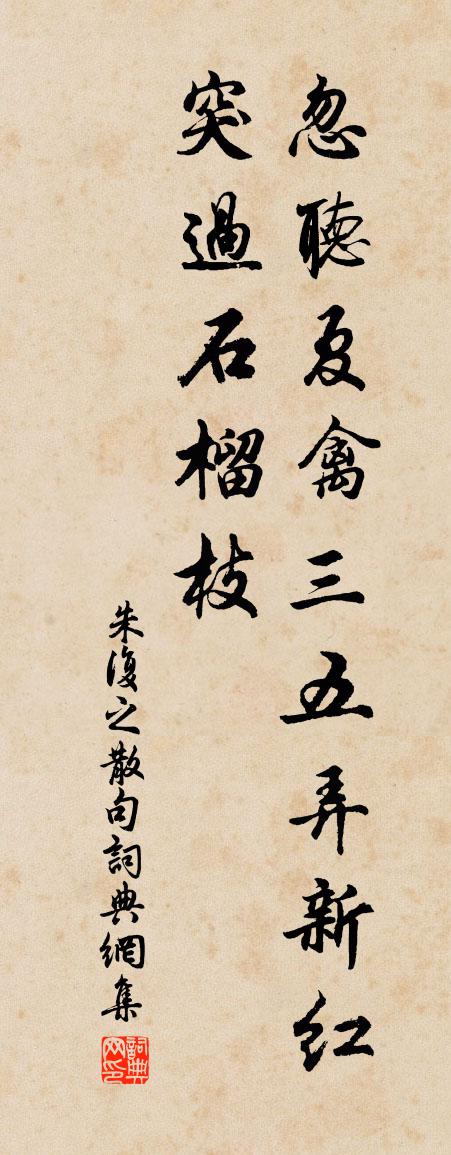 忽聽夏禽三五弄新红
突過石榴枝
朱復之散句詞典網集
詞典网印